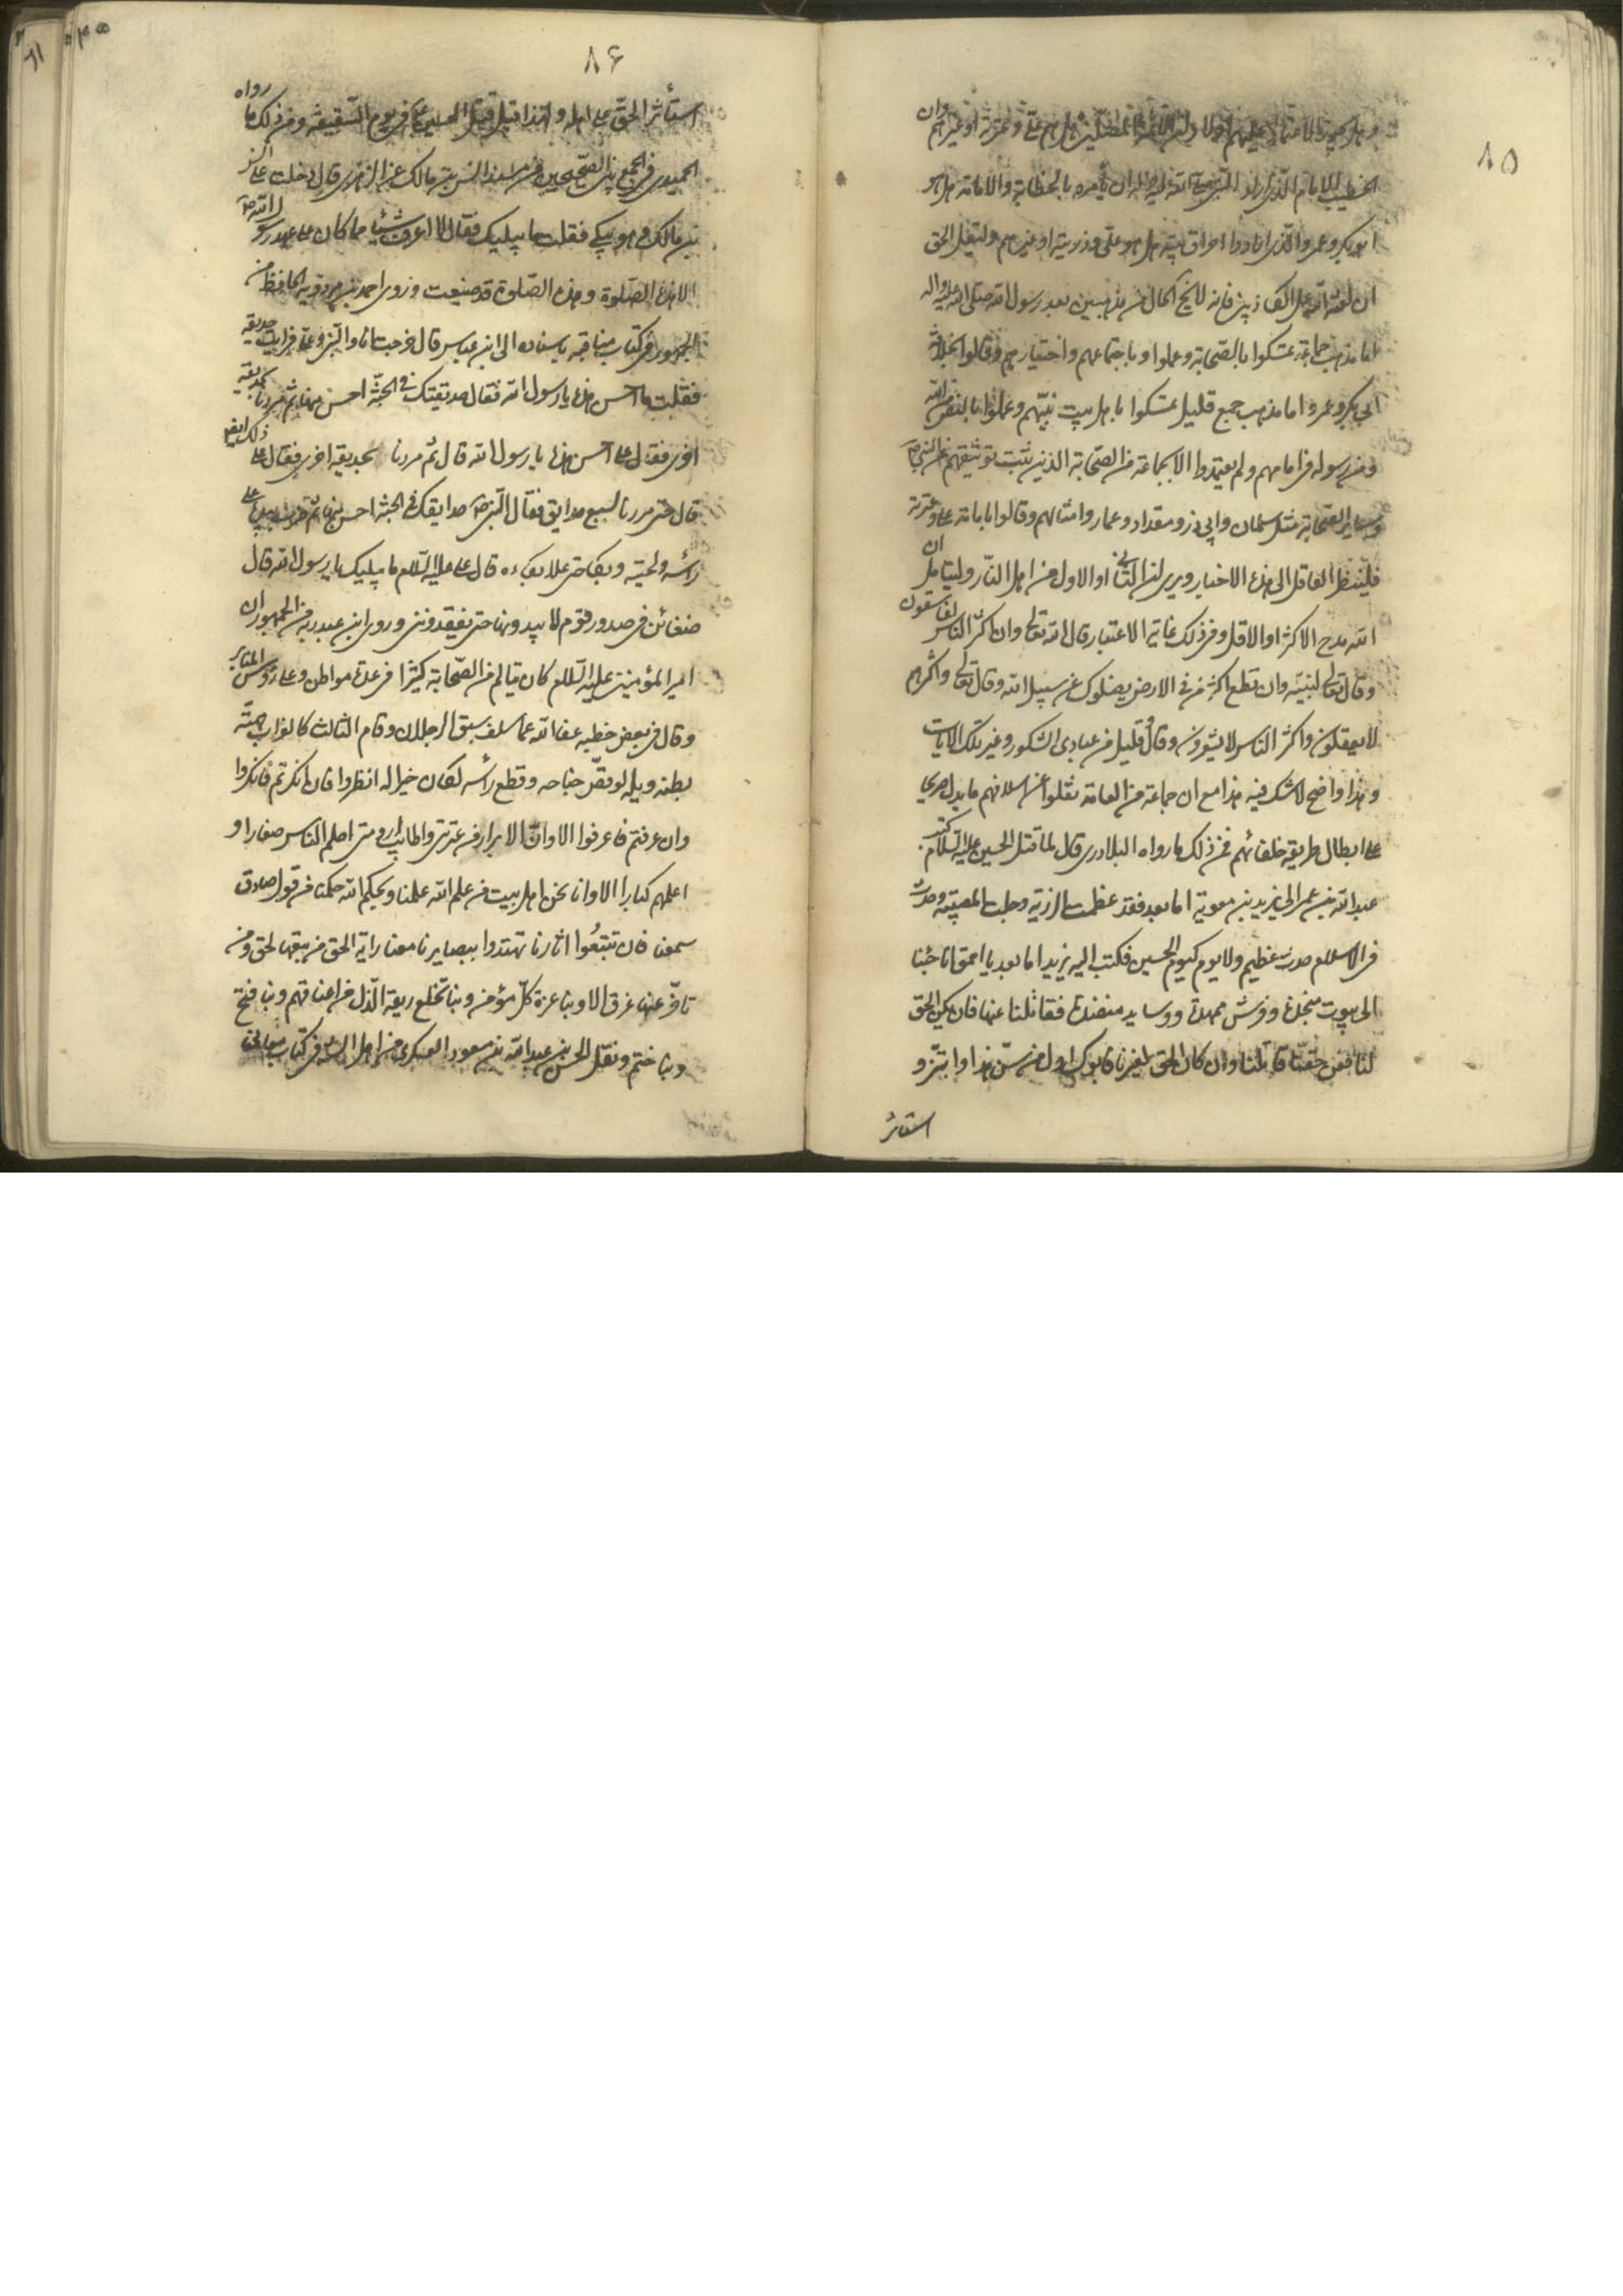 ٨٥
الخطيب للامام الذى اراد النبى صلى الله عليه واله ان يأمره بالخطابة والامامة هل هو
ابو بكر وعمر والذى ارادوا احراق بيته هل هو على وذريته او غيرهم وليقل الحق
ان لعنة الله على الكاذبين فانه لا يخ الحال من مذهبين بعد رسول الله صلى الله عليه واله
اما مذهب جماعة تمسكوا بالصحابة وعملوا باجتماعهم واختيارهم وقالوا بخلافة
ابى بكر وعمر واما مذهب جمع قليل تمسكوا باهل بيت نبيهم وعملوا بالنص من الله
ومن رسوله فى امامهم ولم يعتمدوا الا بجماعة من الصحابة الذين يثبت توثيقهم عن النبى ص
وساير الصحابة مثل سلمان وابى ذر ومقداد وعمار وامثالهم وقالوا بامامة على وعترته
فلينظر العاقل الى هذه الاخبار ويرى ان لنا الثانى او الاول من اهل النار وليتأمل
الله مدح الاكثر او الاقل وفى ذلك غاية الاعتبار قال الله تعالى وان اكثر الناس لفاسقون
وقال تعالى لنبيه وان تطع اكثر من فى الارض يضلوك عن سبيل الله وقال تعالى واكثرهم
لا يعقلون واكثر الناس لا يشعرون وقال قليل من عبادى الشكور وغير تلك الايات
وهذا واضح لا شك فيه هذا مع ان جماعة من العامة نقلوا عن اسلافهم ما يدل صريحا
على ابطال طريقة خلفائهم فمن ذلك ما رواه البلاذرى قال لما قتل الحسين عليه السلام كتب
عبد الله بن عمر الى يزيد بن معوية اما بعد فقد عظمت الرزية وجلت المصيبة وحدث
فى الاسلام حدث عظيم ولا يوم كيوم الحسين فكتب اليه يزيد اما بعد يا احمق انا جئنا
الى بيوت منجدة وفرش ممهدة ووسايد منضدة فقاتلنا عنها فان يكن الحق
لنا فعن حقنا قاتلنا وان كان الحق لغيرنا فابوك اول من سن هذا وابتز و
استاثر
٨۶
استأثر الحق على اهله ولهذا قيل قتل الحسين ع فى يوم السقيفة ومن ذلك ما رواه
الحميدى فى الجمع بين الصحيحين من مسند انس بن مالك عن الزهرى قال دخلت على انس
بن مالك وهو يبكى فقلت ما يبكيك فقال لا اعرف شيئا مما كان على عهد رسول الله ص
الا هذه الصلوة وهذه الصلوة قد ضيعت وروى احمد بن مردويه الحافظ من
الجمهور فى كتاب مناقبه باسناده الى ابن عباس قال خرجت انا والنبى وعلى فرايت حديقة
فقلت ما احسن هذه يا رسول الله فقال حديقتك فى الجنة احسن منها ثم مررنا بحديقة
اخرى فقال على ما احسن هذه يا رسول الله قال ثم مررنا بحديقة اخرى فقال على ذلك ايضا
قال حتى مررنا لسبع حدايق فقال النبى ص حدايقك فى الجنة احسن منها ثم ضرب بيده على
رأسه ولحيته وبكى حتى علا بكاءه قال على عليه السلام ما يبكيك يا رسول الله قال
ضغائن فى صدور قوم لا يبدونها حتى يفقدوننى وروى ابن عبد ربه من الجمهور ان
امير المؤمنين عليه السلام كان يتالم من الصحابة كثيرا فى عدة مواطن وعلى رؤس المنابر
وقال فى بعض خطبه عفا الله عما سلف سبق الرجلان وقام الثالث كالغراب همته
بطنه ويله لو نقص جناحه وقطع رأسه لكان خيرا له انظروا فان انكرتم فانكروا
وان عرفتم فاعرفوا الا وان الابرار من عترتى واطائب ارومتى احلم الناس صغارا و
اعلمهم كبارا الا وانا نحن اهل بيت من علم الله علمنا وبحكم الله حكمنا من قول صادق
سمعنا فان تتبعوا اثارنا تهتدوا ببصايرنا معنا راية الحق من تبعها لحق ومن
تاخر عنها غرق الا وبنا عزة كل مؤمن وبنا تخلع ربقة الذل من اعناقهم وبنا فتح
وبنا ختم ونقل الحسن بن عبد الله بن مسعود العسكرى من اهل السنة فى كتاب معانى